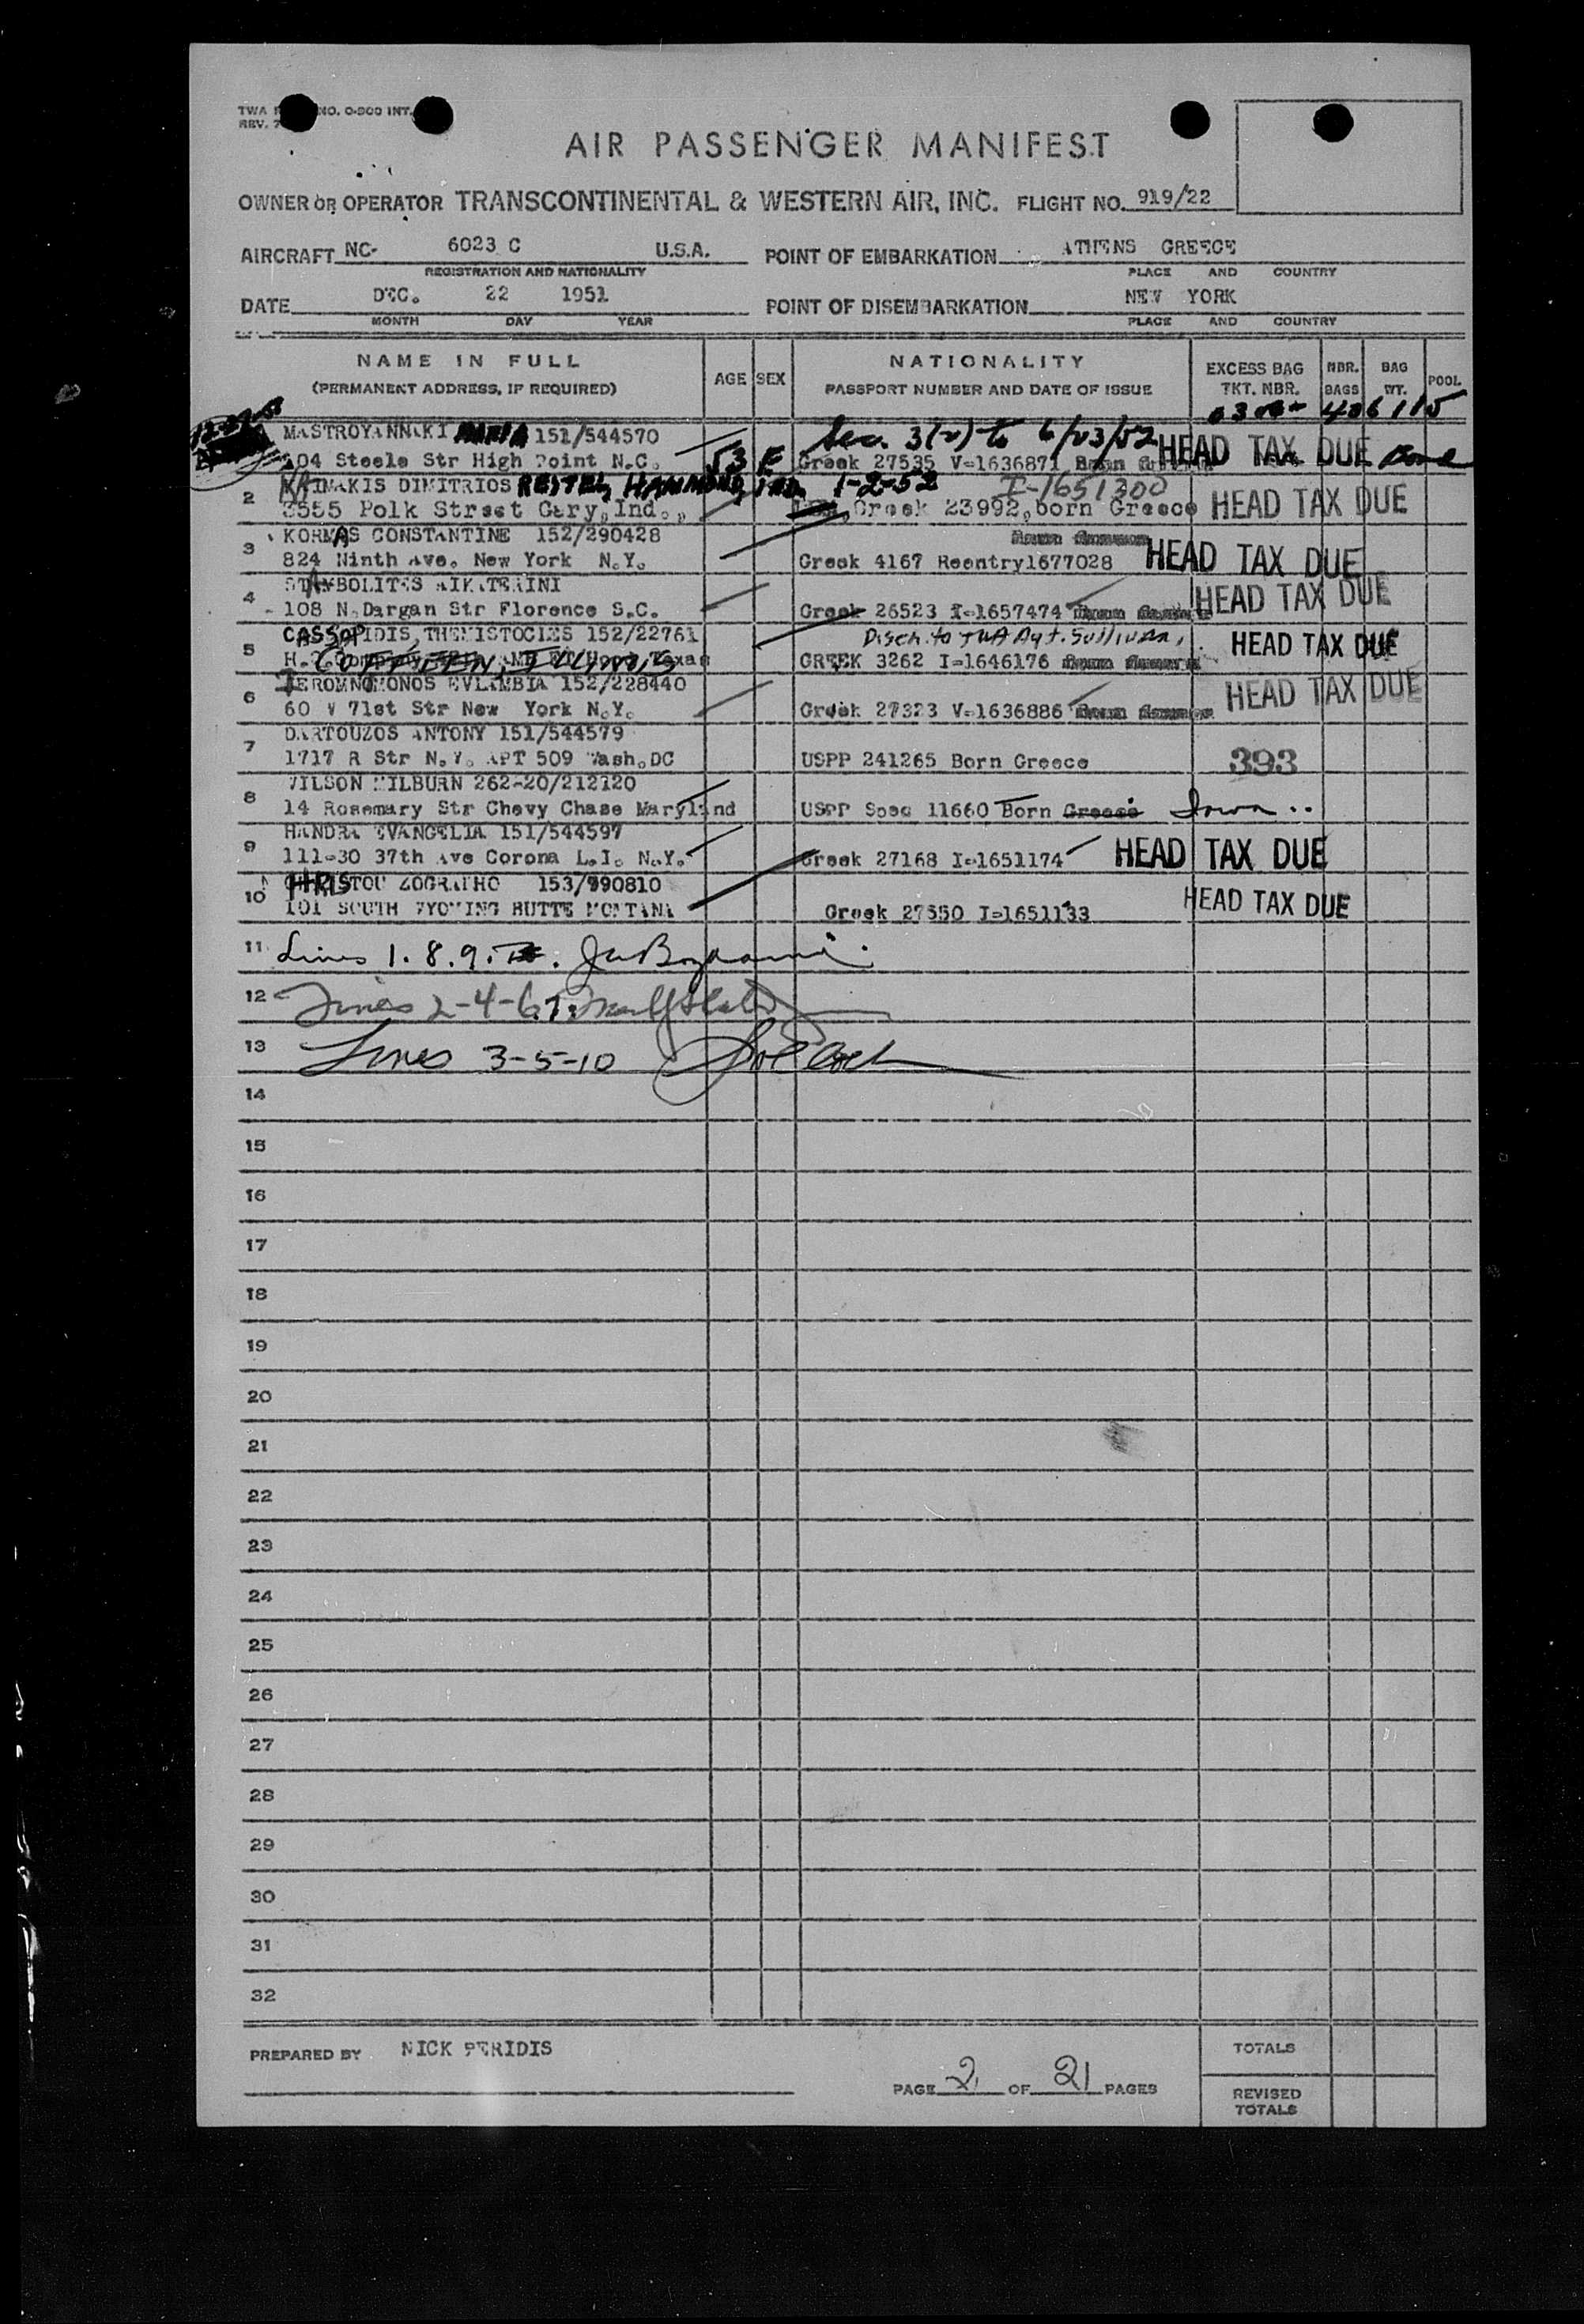 TWA NO. 0-800 INT.
REV. 7
AIR PASSENGER MANIFEST
OWNER OR OPERATOR TRANSCONTINENTAL & WESTERN AIR, INC. FLIGHT NO. 919/22
AIRCRAFT NC- 6023 C U.S.A. POINT OF EMBARKATION ATHENS GREECE
REGISTRATION AND NATIONALITY PLACE AND COUNTRY
DATE DEC. 22 1951 POINT OF DISEMBARKATION NEW YORK
MONTH DAY YEAR PLACE AND COUNTRY
NAME IN FULL NATIONALITY
(PERMANENT ADDRESS, IF REQUIRED) AGE SEX PASSPORT NUMBER AND DATE OF ISSUE EXCESS BAG TKT. NBR. NBR. BAGS BAG WT. POOL
MASTROYANNAKI MARIA 151/544570 Sec. 3(2) to 6/23/52 HEAD TAX DUE
104 Steele Str High Point N.C. 53 F Greek 27535 V=1636871
2 KAIMAKIS DIMITRIOS HAMMOND, IND. 1-2-52 I-1651300 HEAD TAX DUE
3555 Polk Street Gary, Ind., Greek 23992, born Greece
3 KORMAS CONSTANTINE 152/290428
824 Ninth Ave. New York N.Y. Greek 4167 Reentry1677028 HEAD TAX DUE
4 STAMBOLITES AIKATERINI
108 N.Dargan Str Florence S.C. Greek 26523 I=1657474 HEAD TAX DUE
5 CASSOPIDIS, THEMISTOCLES 152/22761 Disch. to TWA Agt. Sullivan, HEAD TAX DUE
Texas GREEK 3262 I=1646176
6 IEROMNOMONOS EVLAMBIA 152/228440 HEAD TAX DUE
60 W 71st Str New York N.Y. Greek 27323 V=1636886
7 DARTOUZOS ANTONY 151/544579
1717 R Str N.Y. APT 509 Wash.DC USPP 241265 Born Greece 393
8 WILSON MILBURN 262-20/212120
14 Rosemary Str Chevy Chase Maryland USPP Spec 11660 Born Greece Iowa
9 HANDRA EVANGELIA 151/544597
111-30 37th Ave Corona L.I. N.Y. Greek 27168 I=1651174 HEAD TAX DUE
10 CHRISTOU ZOGRATHO 153/990810
101 SOUTH WYOMING BUTTE MONTANA Greek 27550 I=1651133 HEAD TAX DUE
11 Lines 1. 8. 9.
12 Lines 2-4-6-7
13 Lines 3-5-10
14
15
16
17
18
19
20
21
22
23
24
25
26
27
28
29
30
31
32
PREPARED BY NICK PERIDIS TOTALS
PAGE 2 OF 21 PAGES REVISED TOTALS